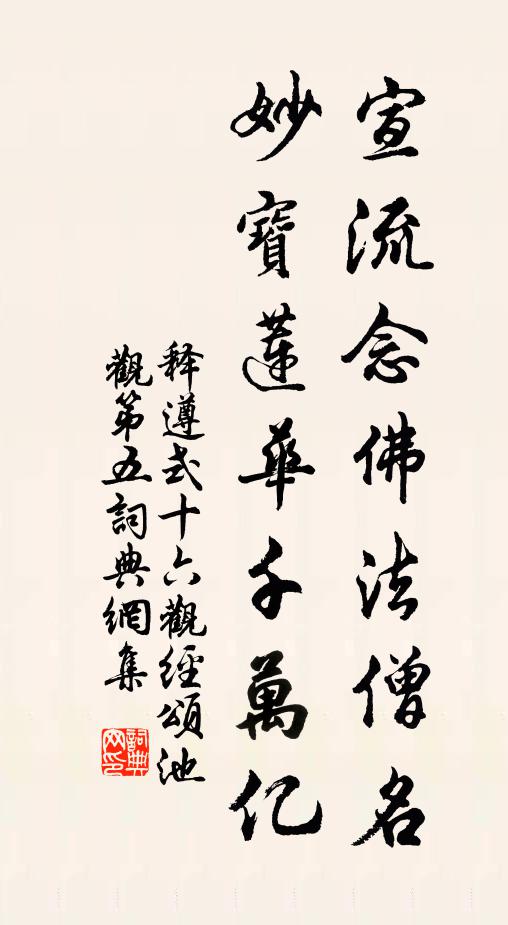 宣流念佛法僧名
妙寶蓮華千萬亿
释遵式十六觀經頌池
觀第五詞典網集
詞典網印